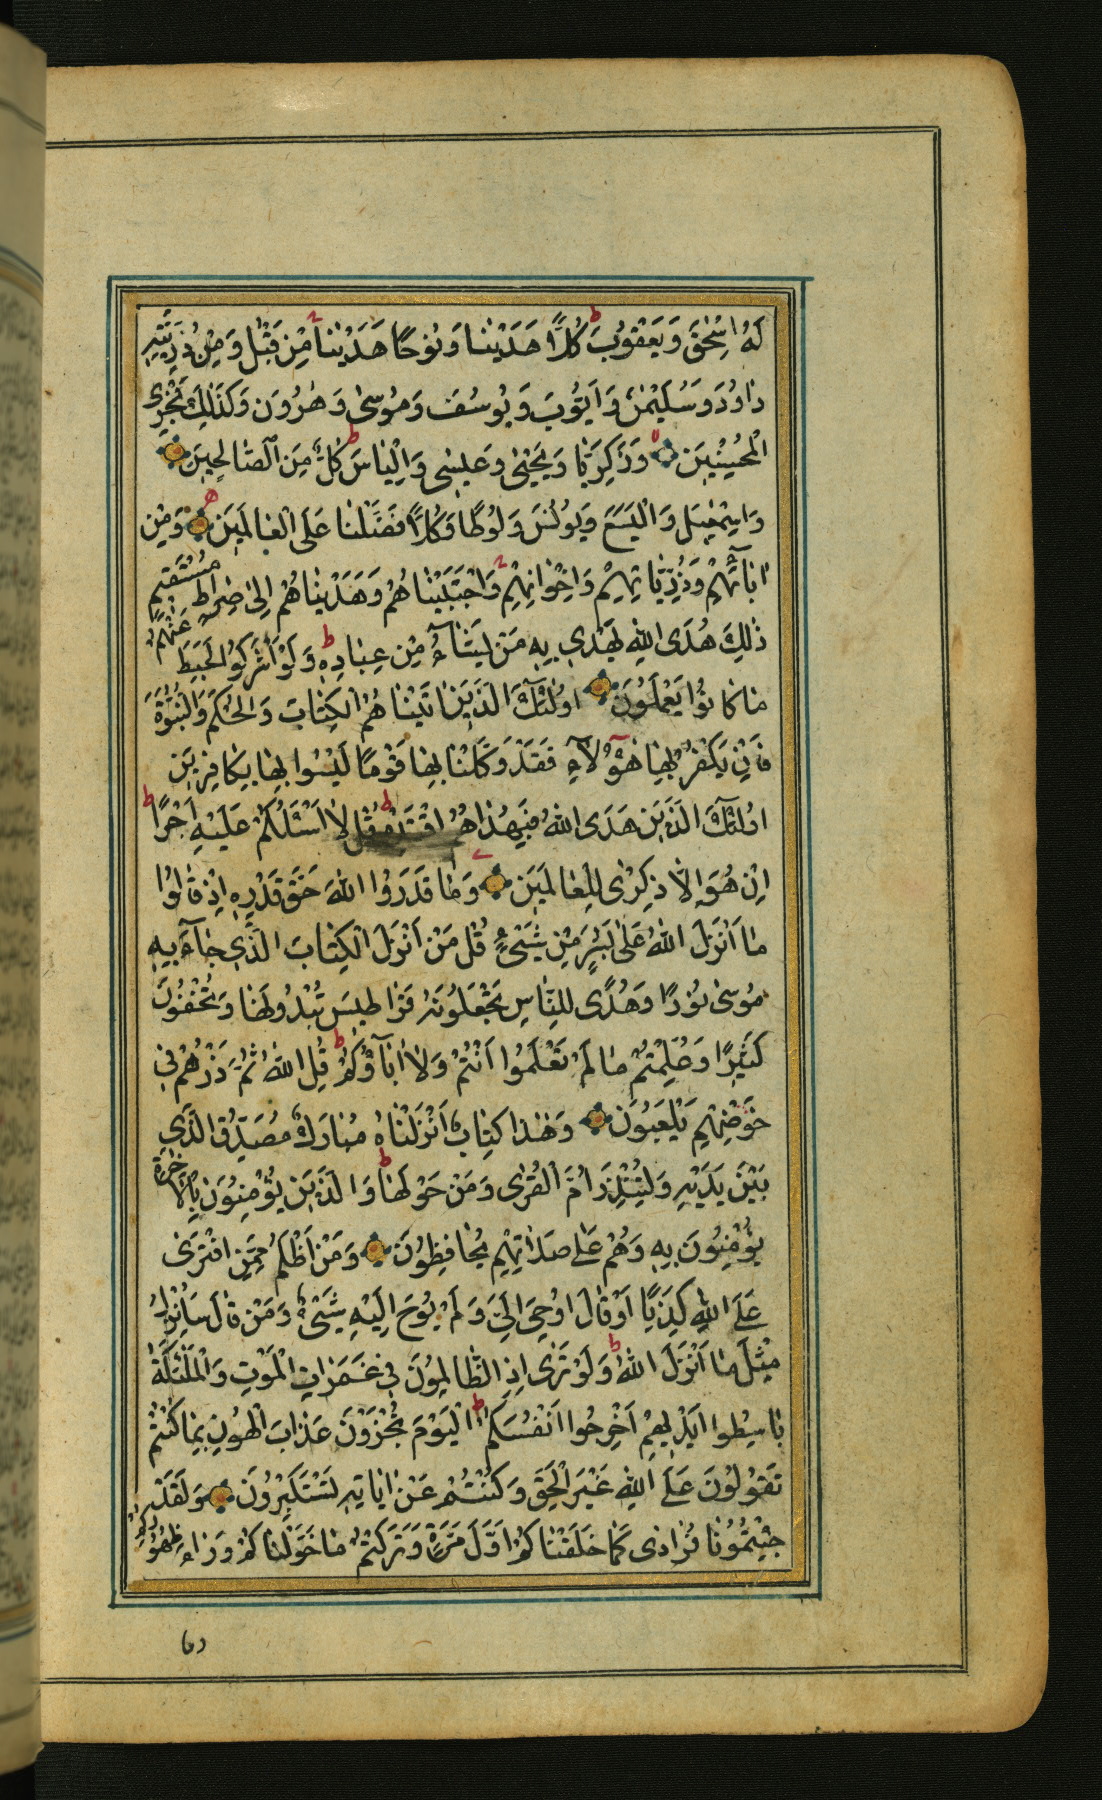 لَهُ اِسْحٰقَ وَيَعْقُوبَ كُلًّا هَدَيْنٰا وَنُوحًا هَدَيْنٰا مِنْ قَبْلُ وَمِنْ ذُرِّيَّتِهِ
دٰاوُدَ وَسُلَيْمٰنَ وَاَيُّوبَ وَيُوسُفَ وَمُوسىٰ وَهٰرُونَ وَكَذٰلِكَ نَجْزِى
الْمُحْسِنِينَ وَزَكَرِيّٰا وَيَحْيٰى وَعِيسٰى وَاِلْيٰاسَ كُلٌّ مِنَ الصّٰالِحِينَ
وَاِسْمٰعِيلَ وَالْيَسَعَ وَيُونُسَ وَلُوطًا وَكُلًّا فَضَّلْنٰا عَلَى الْعٰالَمِينَ وَمِنْ
اٰبٰآئِهِمْ وَذُرِّيّٰاتِهِمْ وَاِخْوٰانِهِمْ وَاجْتَبَيْنٰاهُمْ وَهَدَيْنٰاهُمْ اِلىٰ صِرٰاطٍ مُسْتَقِيمٍ
ذٰلِكَ هُدَى اللّٰهِ يَهْدِى بِهِ مَنْ يَشٰآءُ مِنْ عِبٰادِهِ وَلَوْ اَشْرَكُوا لَحَبِطَ عَنْهُمْ
مٰا كٰانُوا يَعْمَلُونَ اُولٰئِكَ الَّذِينَ اٰتَيْنٰاهُمُ الْكِتٰابَ وَالْحُكْمَ وَالنُّبُوَّةَ
فَاِنْ يَكْفُرْ بِهٰا هٰؤُلَآءِ فَقَدْ وَكَّلْنٰا بِهٰا قَوْمًا لَيْسُوا بِهٰا بِكٰافِرِينَ
اُولٰئِكَ الَّذِينَ هَدَى اللّٰهُ فَبِهُدٰاهُمُ اقْتَدِهْ قُلْ لٰا اَسْئَلُكُمْ عَلَيْهِ اَجْرًا
اِنْ هُوَ اِلّٰا ذِكْرٰى لِلْعٰالَمِينَ وَمٰا قَدَرُوا اللّٰهَ حَقَّ قَدْرِهِ اِذْ قٰالُوا
مٰا اَنْزَلَ اللّٰهُ عَلىٰ بَشَرٍ مِنْ شَىْءٍ قُلْ مَنْ اَنْزَلَ الْكِتٰابَ الَّذِى جٰآءَ بِهِ
مُوسىٰ نُورًا وَهُدًى لِلنّٰاسِ تَجْعَلُونَهُ قَرٰاطِيسَ تُبْدُونَهٰا وَتُخْفُونَ
كَثِيرًا وَعُلِّمْتُمْ مٰا لَمْ تَعْلَمُوا اَنْتُمْ وَلٰا اٰبٰآؤُكُمْ قُلِ اللّٰهُ ثُمَّ ذَرْهُمْ فِى
خَوْضِهِمْ يَلْعَبُونَ وَهٰذٰا كِتٰابٌ اَنْزَلْنٰاهُ مُبٰارَكٌ مُصَدِّقُ الَّذِى
بَيْنَ يَدَيْهِ وَلِتُنْذِرَ اُمَّ الْقُرٰى وَمَنْ حَوْلَهٰا وَالَّذِينَ يُؤْمِنُونَ بِالْاٰخِرَةِ
يُؤْمِنُونَ بِهِ وَهُمْ عَلىٰ صَلٰاتِهِمْ يُحٰافِظُونَ وَمَنْ اَظْلَمُ مِمَّنِ افْتَرٰى
عَلَى اللّٰهِ كَذِبًا اَوْ قٰالَ اُوحِىَ اِلَىَّ وَلَمْ يُوحَ اِلَيْهِ شَىْءٌ وَمَنْ قٰالَ سَاُنْزِلُ
مِثْلَ مٰا اَنْزَلَ اللّٰهُ وَلَوْ تَرٰى اِذِ الظّٰالِمُونَ فِى غَمَرٰاتِ الْمَوْتِ وَالْمَلٰئِكَةُ
بٰاسِطُوا اَيْدِيهِمْ اَخْرِجُوا اَنْفُسَكُمُ الْيَوْمَ تُجْزَوْنَ عَذٰابَ الْهُونِ بِمٰا كُنْتُمْ
تَقُولُونَ عَلَى اللّٰهِ غَيْرَ الْحَقِّ وَكُنْتُمْ عَنْ اٰيٰاتِهِ تَسْتَكْبِرُونَ وَلَقَدْ
جِئْتُمُونٰا فُرٰادٰى كَمٰا خَلَقْنٰاكُمْ اَوَّلَ مَرَّةٍ وَتَرَكْتُمْ مٰا خَوَّلْنٰاكُمْ وَرٰاءَ ظُهُورِكُمْ